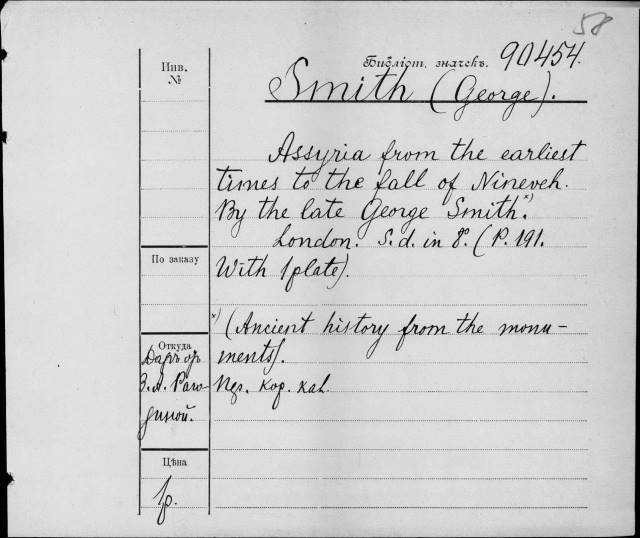 58
Библіот. значекъ. 90454.
Инв. №
Smith (George).
Assyria from the earliest
times to the fall of Nineveh.
By the late George Smith.*)
London. S. d. in 8º. (P. 191.
With 1 plate).
По заказу
*) (Ancient history from the monu-
ments).
Откуда
Даръ отъ
З. А. Раго-
зиной.
кор. каl.
Цѣна
1 р.